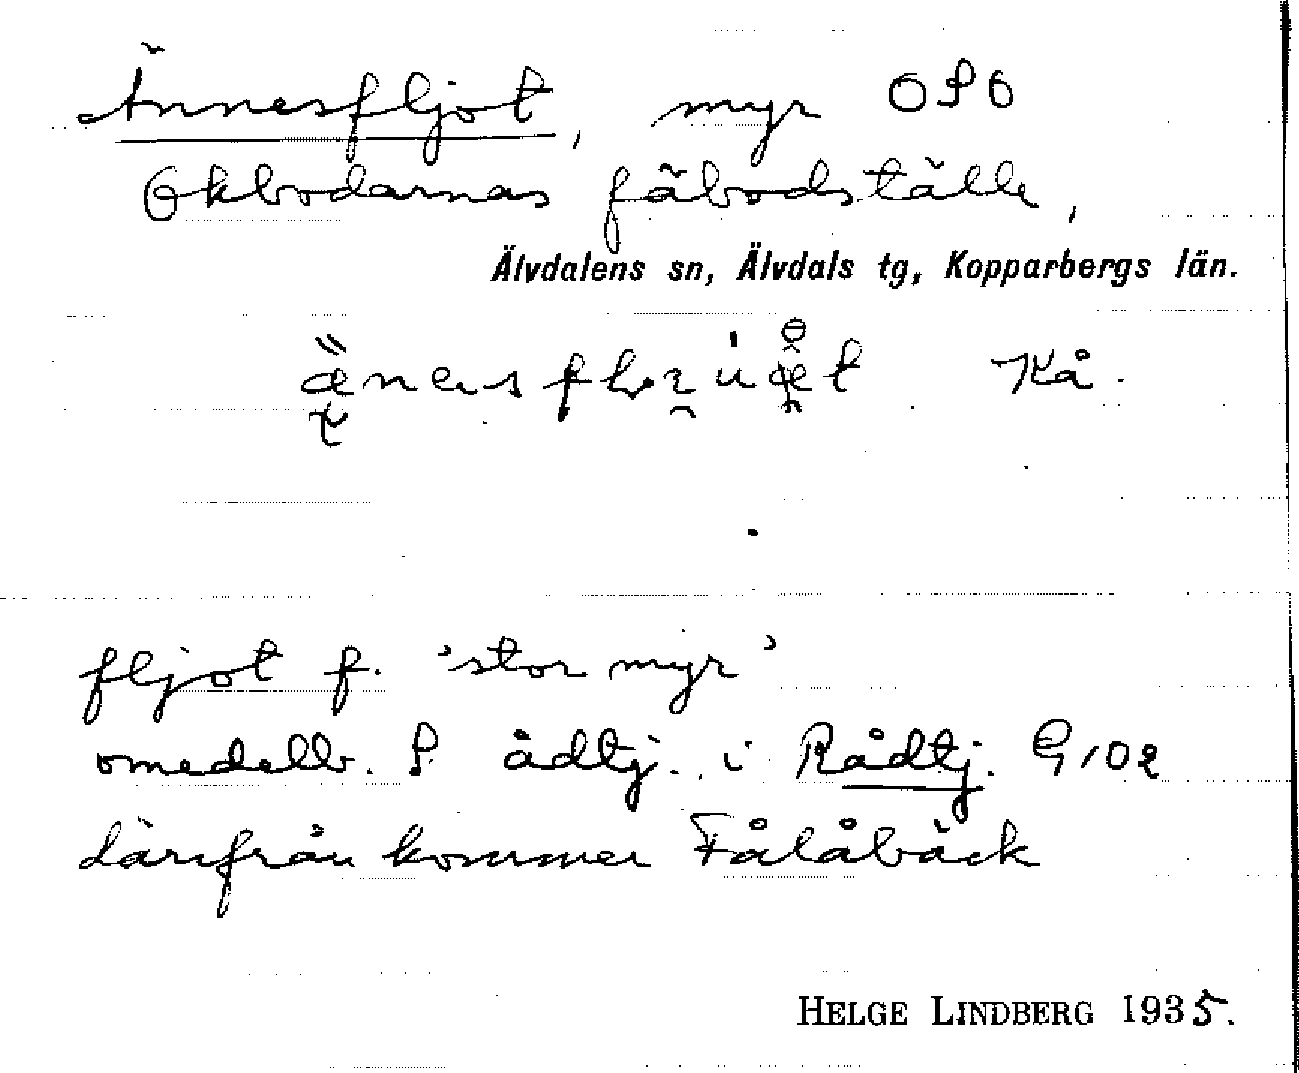 Ännesfljot, myr OSO
Okbodarnas fäbodställe,
Älvdalens sn, Älvdals tg, Kopparbergs län.
Kå.
fljot f. 'stor myr'
omedelb. S ådtj. i Rådtj. G 102
därifrån kommer Fålåbäck
HELGE LINDBERG 1935.